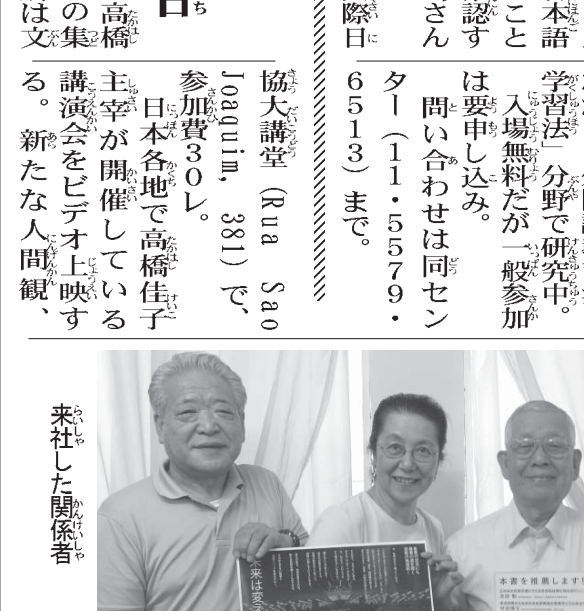 本語
こと
認す
さん
際日
学習法」分野で研究中。
入場無料だが一般参加
は要申し込み。
問い合わせは同セン
ター（11・5579・
6513）まで。
高橋
の集
は文
協大講堂（Rua Sao
Joaquim, 381）で、
参加費30レ。
日本各地で高橋佳子
主宰が開催している
講演会をビデオ上映す
る。新たな人間観、
来社した関係者
来は変え
本書を推薦します